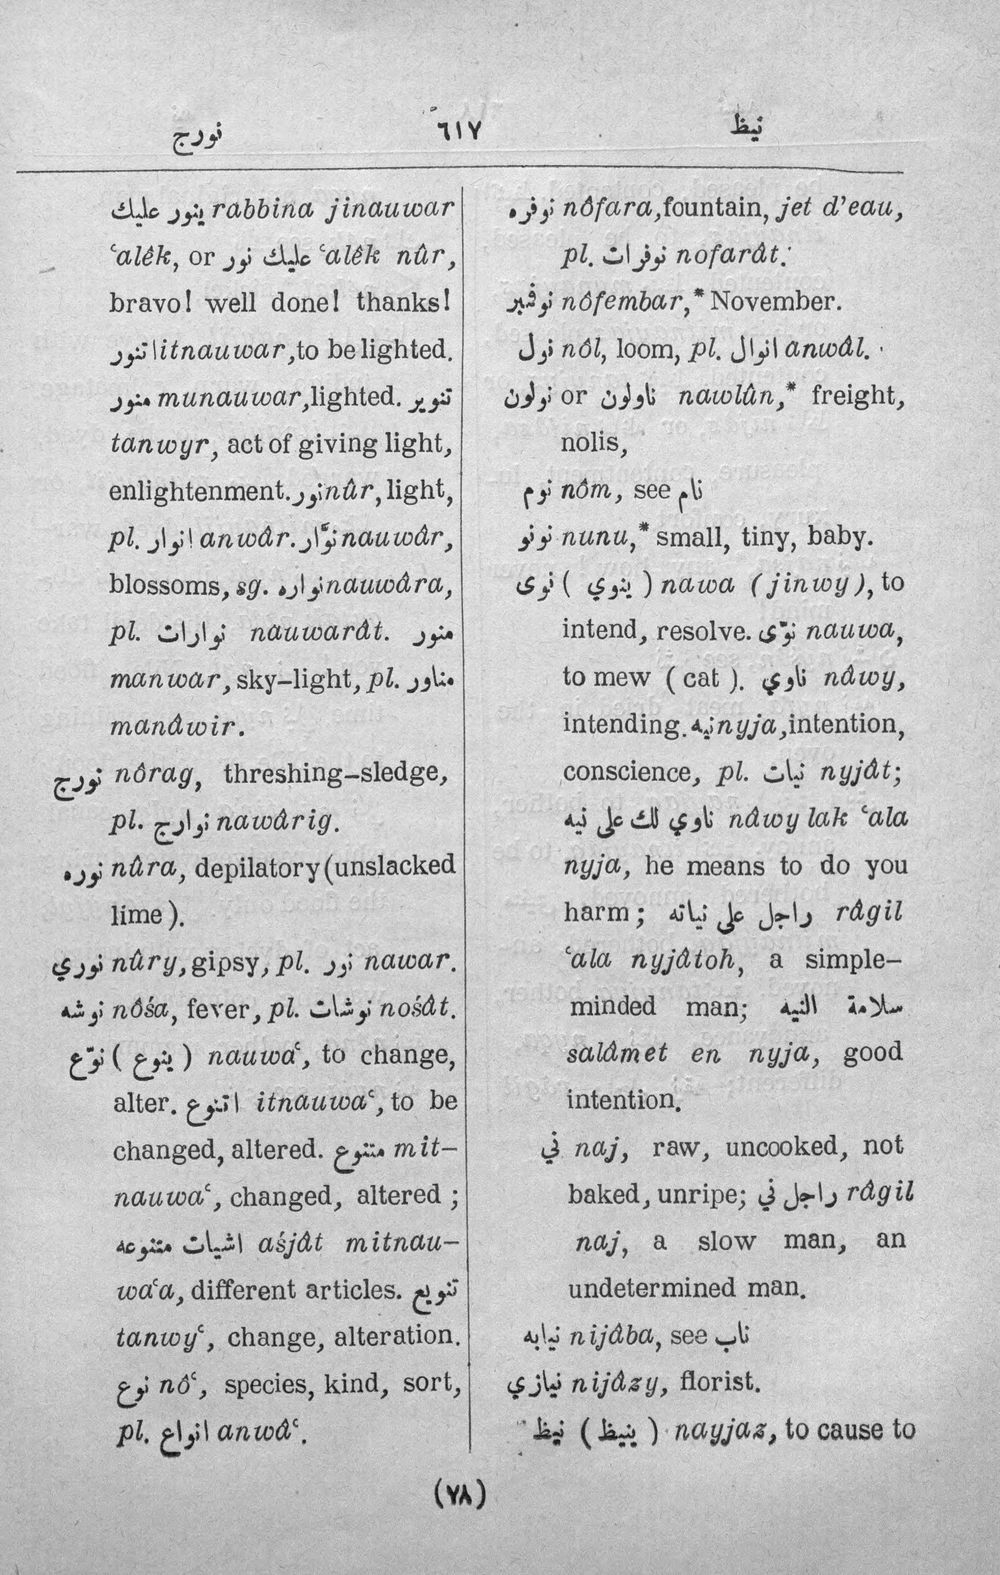 نورج ٦١٧ نيظ
ينور عليك rabbina jinauwar
ʿalêk, or عليك نور ʿalêk nûr,
bravo! well done! thanks!
اتنور itnauwar, to be lighted.
منور munauwar, lighted. تنوير
tanwyr, act of giving light,
enlightenment. نور nûr, light,
pl. انوار anwâr. نوَّار nauwâr,
blossoms, sg. نواره nauwâra,
pl. نوارات nauwarât. منور
manwar, sky-light, pl. مناور
manâwir.
نورج nôrag, threshing-sledge,
pl. نوارج nawârig.
نوره nûra, depilatory (unslacked
lime).
نوري nûry, gipsy, pl. نور nawar.
نوشه nôśa, fever, pl. نوشات nośât.
نوّع ( ينوع ) nauwaʿ, to change,
alter. اتنوع itnauwaʿ, to be
changed, altered. متنوع mit-
nauwaʿ, changed, altered ;
اشيات متنوعه aśjât mitnau-
waʿa, different articles. تنويع
tanwyʿ, change, alteration.
نوع nôʿ, species, kind, sort,
pl. انواع anwâʿ.
نوفره nôfara, fountain, jet d'eau,
pl. نوفرات nofarât.
نوفمبر nôfembar,* November.
نول nôl, loom, pl. انوال anwâl.
نولون or ناولون nawlûn,* freight,
nolis,
نوم nôm, see نام
نونو nunu,* small, tiny, baby.
نوى ( ينوي ) nawa (jinwy), to
intend, resolve. نوّى nauwa,
to mew ( cat ). ناوي nâwy,
intending. نيه nyja, intention,
conscience, pl. نيات nyjât;
ناوي لك على نيه nâwy lak ʿala
nyja, he means to do you
harm ; راجل على نياته râgil
ʿala nyjâtoh, a simple-
minded man; سلامة النيه
salâmet en nyja, good
intention.
ني naj, raw, uncooked, not
baked, unripe; راجل ني râgil
naj, a slow man, an
undetermined man.
نيابه nijâba, see ناب
نيازي nijâzy, florist.
نيظ ( ينيظ ) nayjaz, to cause to
(٧٨)